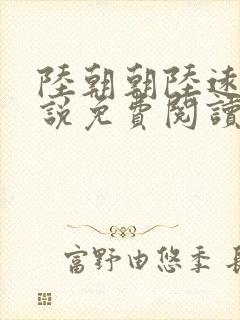 陸朝朝陸遠
說免費閱讀
富野由悠季 長